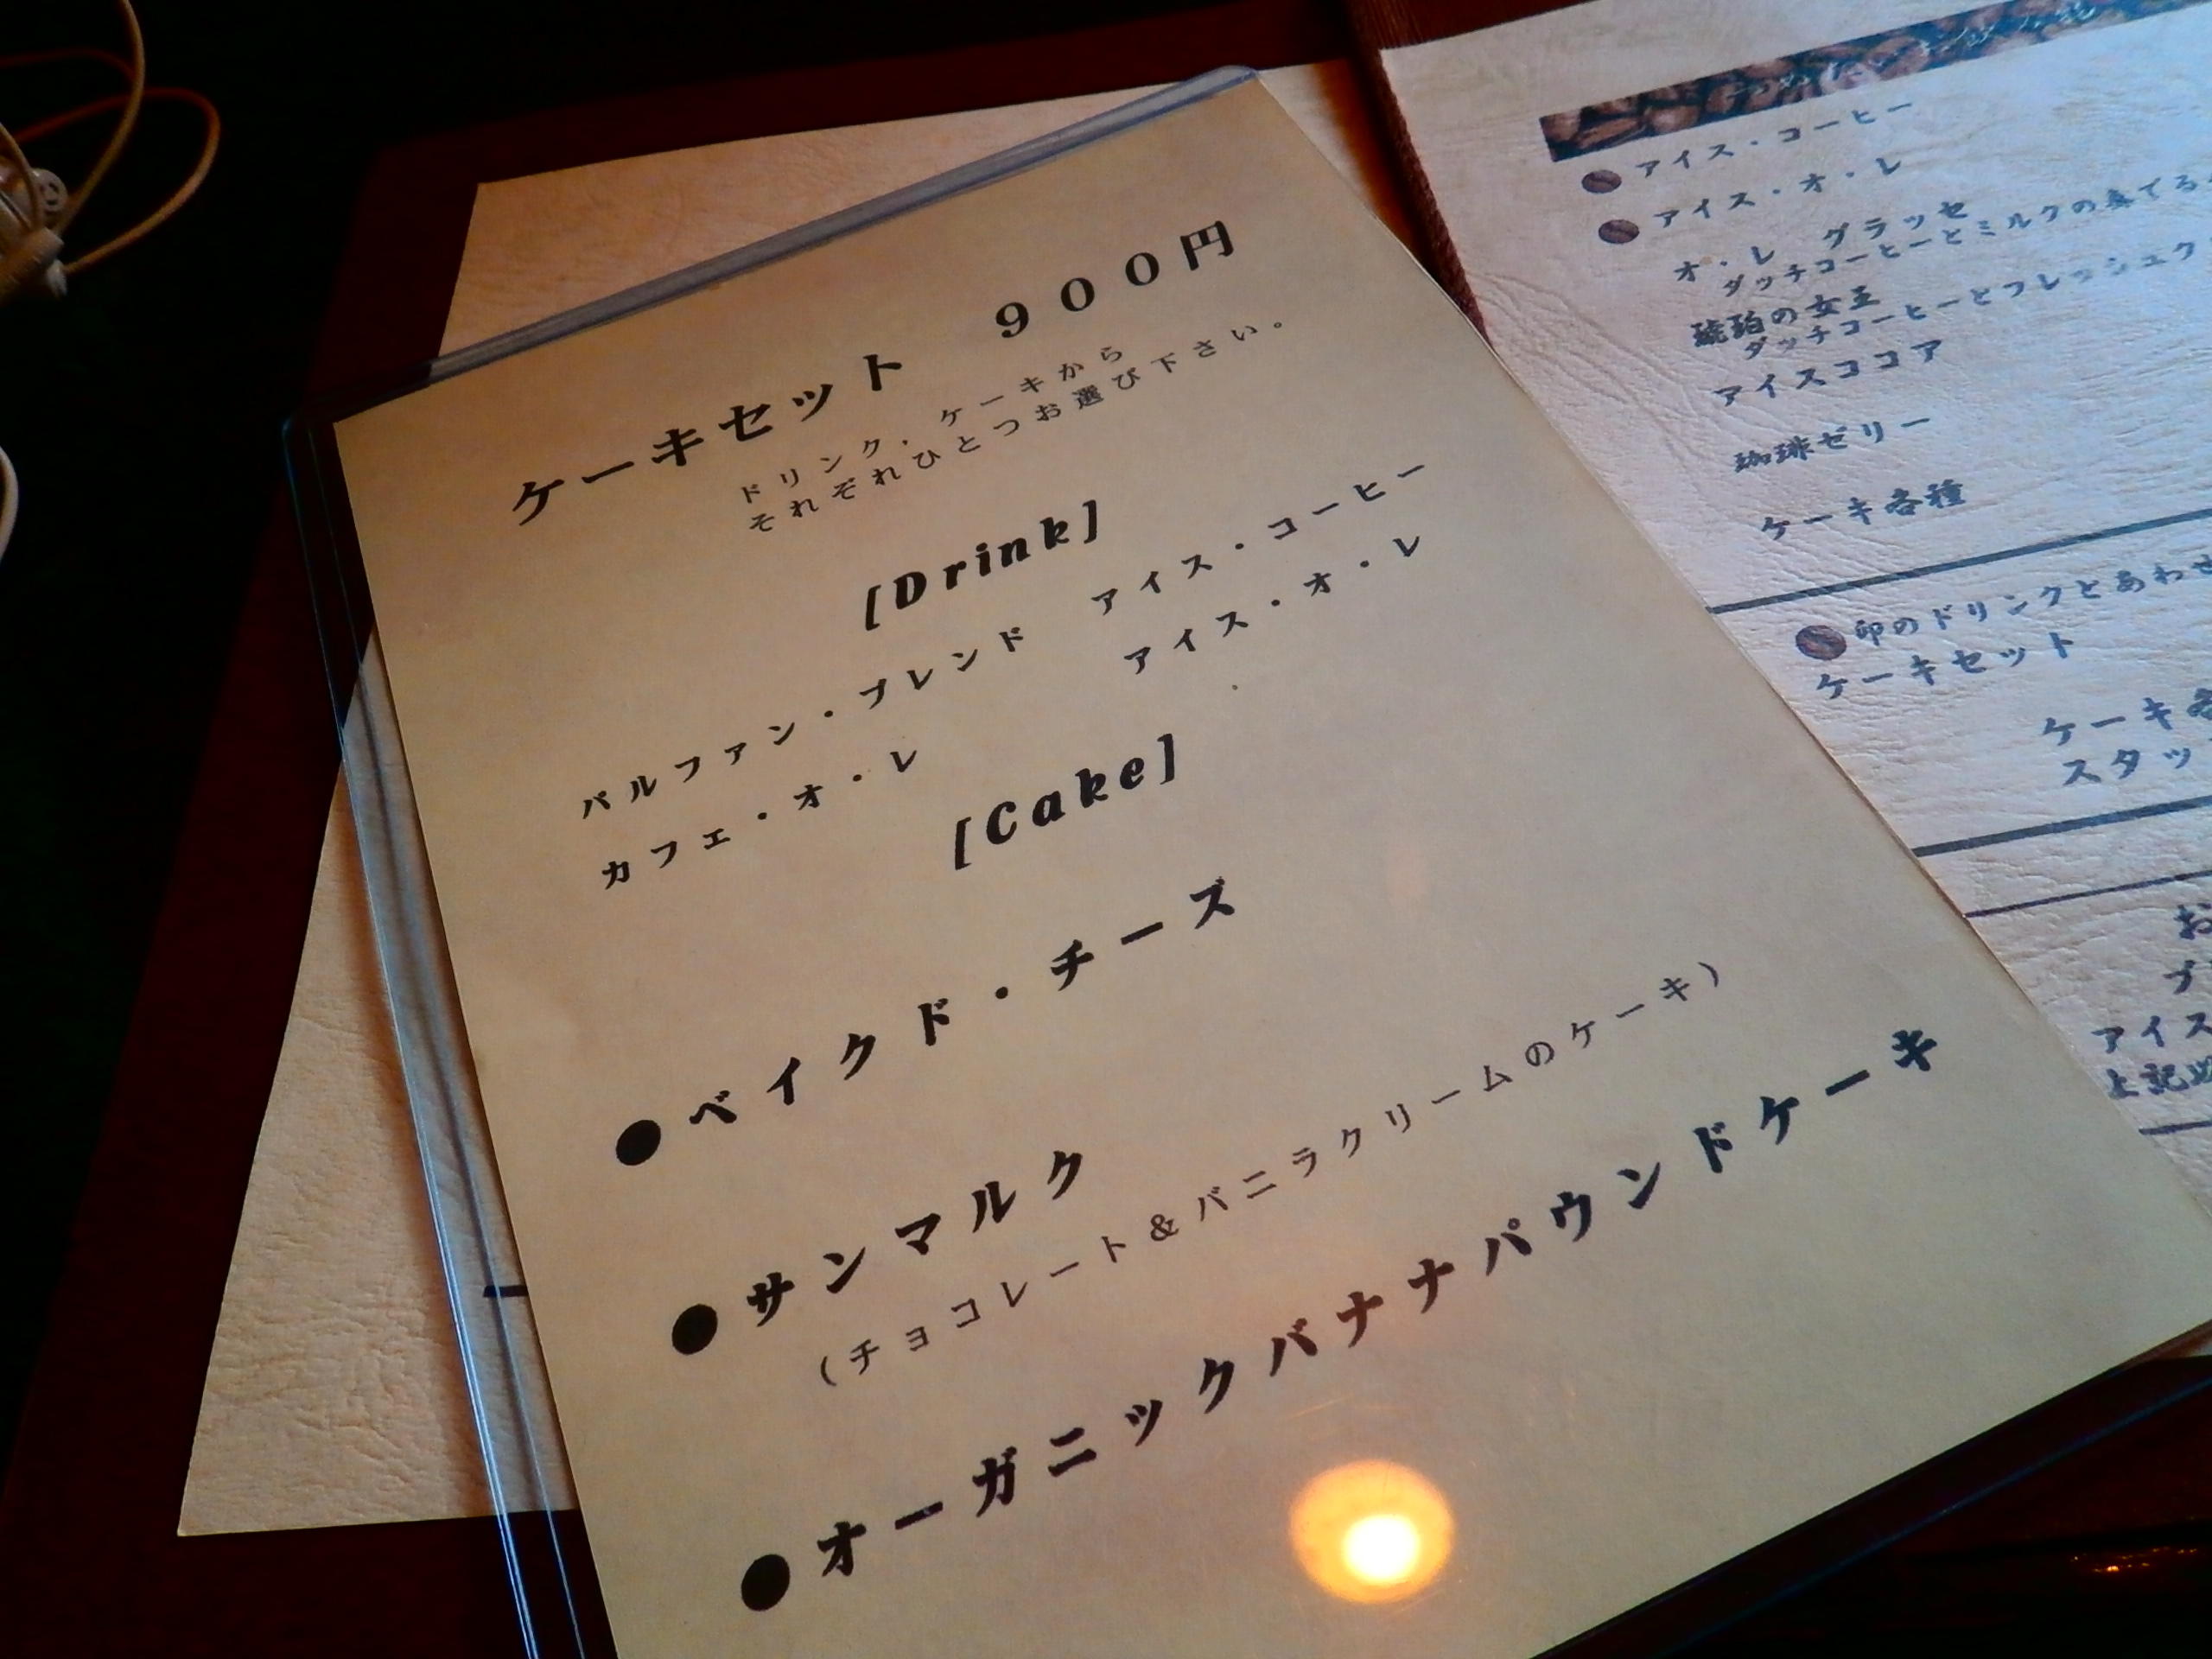 ケーキセット　９００円
ドリンク、ケーキから
それぞれひとつお選び下さい。
[Drink]
パルファン・ブレンド　アイス・コーヒー
カフェ・オ・レ　アイス・オ・レ
[Cake]
●ベイクド・チーズ
●サンマルク
（チョコレート＆バニラクリームのケーキ）
●オーガニックバナナパウンドケーキ
アイス・コーヒー
アイス・オ・レ
オ・レ　グラッセ
ダッチコーヒーとミルクの奏でる
琥珀の女王
ダッチコーヒーとフレッシュク
アイスココア
珈琲ゼリー
ケーキ各種
印のドリンクとあわせ
ケーキセット
ケーキ各
スタッ
お
アイス
上記以